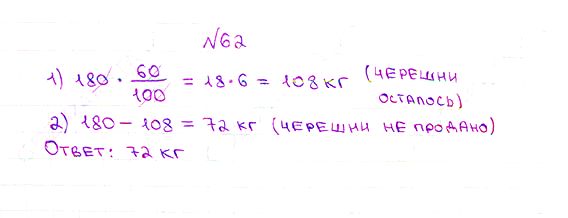 №62
1) 180 · 60/100 = 18·6 = 108 кг (черешни
осталось)
2) 180 - 108 = 72 кг (черешни не продано)
Ответ: 72 кг